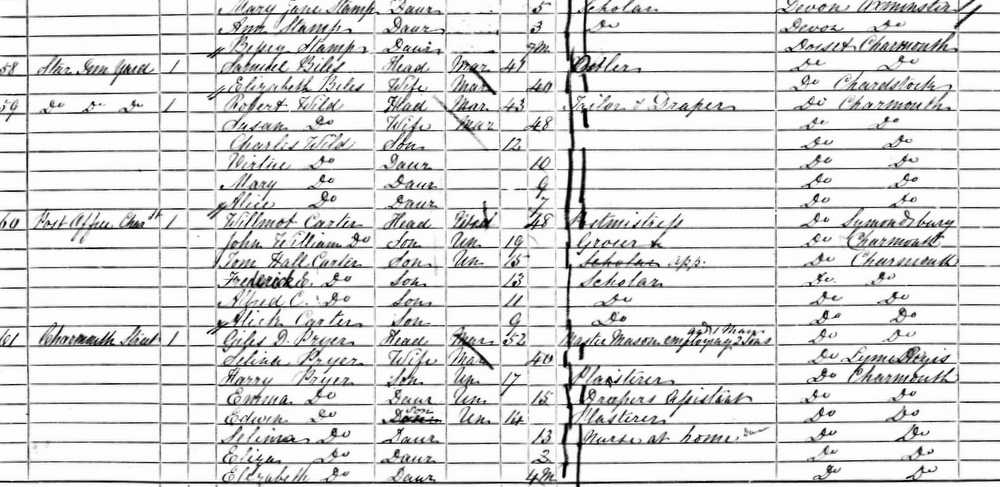 Mary Jane Stamp Daur 5 Scholar Devon Axminster
Ann Stamp Daur 3 Do Devon Do
Stamp Daur 7m Dorset Charmouth
58 Star Inn Yard 1 Samuel Biles Head Mar 41 Ostler Do Do
Elizabeth Biles Wife Mar 40 Do Chardstock
59 Do Do Do 1 Robert Wild Head Mar 43 Tailor & Draper Do Charmouth
Susan Do Wife Mar 48 Do Do
Charles Wild Son 12 Do Do
Virtue Do Daur 10 Do Do
Mary Do Daur 9 Do Do
Alice Do Daur 7 Do Do
60 Post Office Char St 1 Willmot Carter Head 48 Postmistress Do Symondsbury
John William Do Son Un 19 Grocer Do Charmouth
Tom Hall Carter Son Un 15 Scholar App. Do Charmouth
Frederick E. Do Son 13 Scholar Do Do
Alfred C. Do Son 11 Do Do Do
Carter Son 9 Do Do Do
61 Charmouth Street 1 Giles D. Pryer Head Mar 52 Master Mason employing 2 Sons and 1 Man Do Do
Selina Pryer Wife Mar 40 Do Lyme Regis
Harry Pryer Son Un 17 Plaisterer Do Charmouth
Emma Do Daur Un 15 Drapers Assistant Do Do
Edwin Do Son Un 14 Plasterer Do Do
Selina Do Daur 13 Nurse at home Do Do
Eliza Do Daur 3 Do Do
Elizabeth Do Daur 4m Do Do